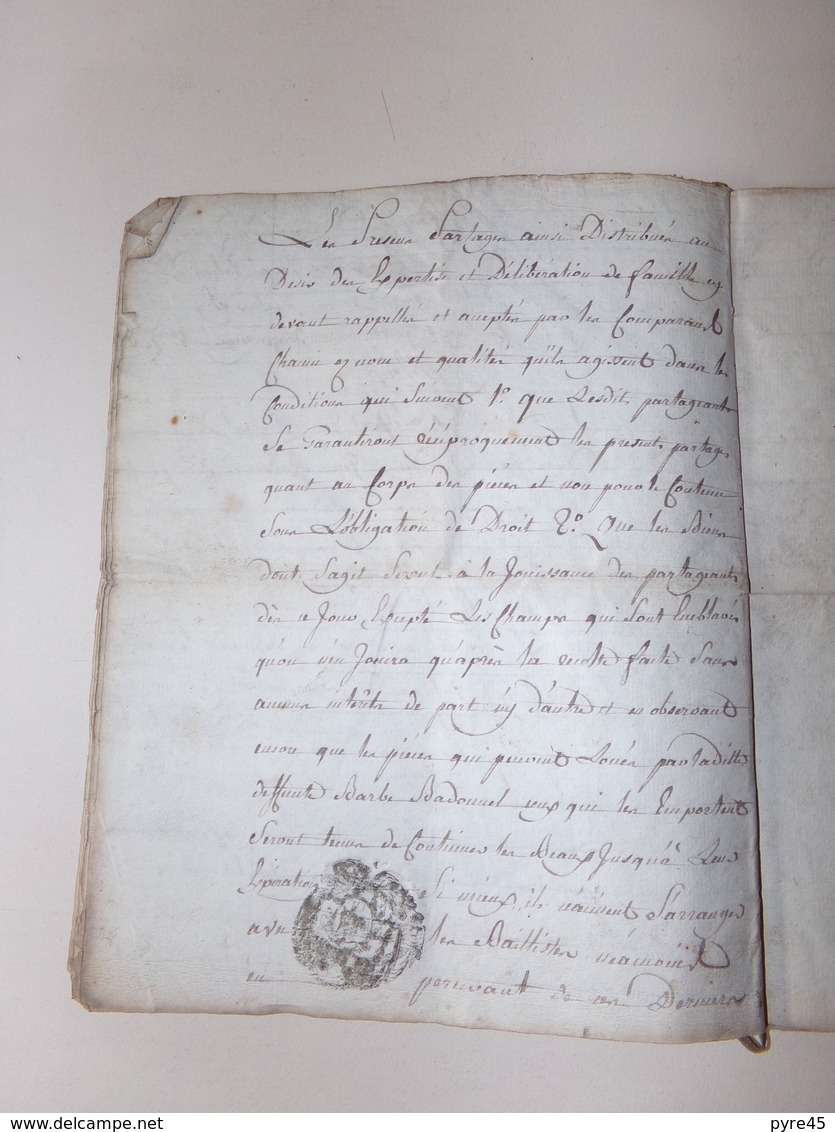 Les Presens Partages ainsi Distribués au
Desir des Expertise et Délibération de famille cy
devant rappellés et aceptés par les Comparant
Chacun ez noms et qualités qu'ils agissent dans les
Conditions qui Suivent 1o. que Lesdits partageants
Se Garantiront réciproquement les presents partages
quant au Corps des pièces et non pour le Contenu
Sous L'obligation de Droit 2o. Que les Biens
dont Sagit Seront à la Jouissance des partageants
dès ce Jour Excepté Les Champs qui Sont Emblavés
qu'on n'en Jouira qu'après la recolte faite Sans
aucuns intérêts de part ny d'autre et en observant
encore que les pièces qui peuvent Louér par laditte
deffunte Barbe Badonnel ceux qui les Emportent
Seront tenus de Continuer les Beaux Jusqu'à Leur
Expiration Si mieux ils n'aiment S'arranger
avec les Baillistes néamoins
en percevant de ces Derniers
delcampe.net
pyre45